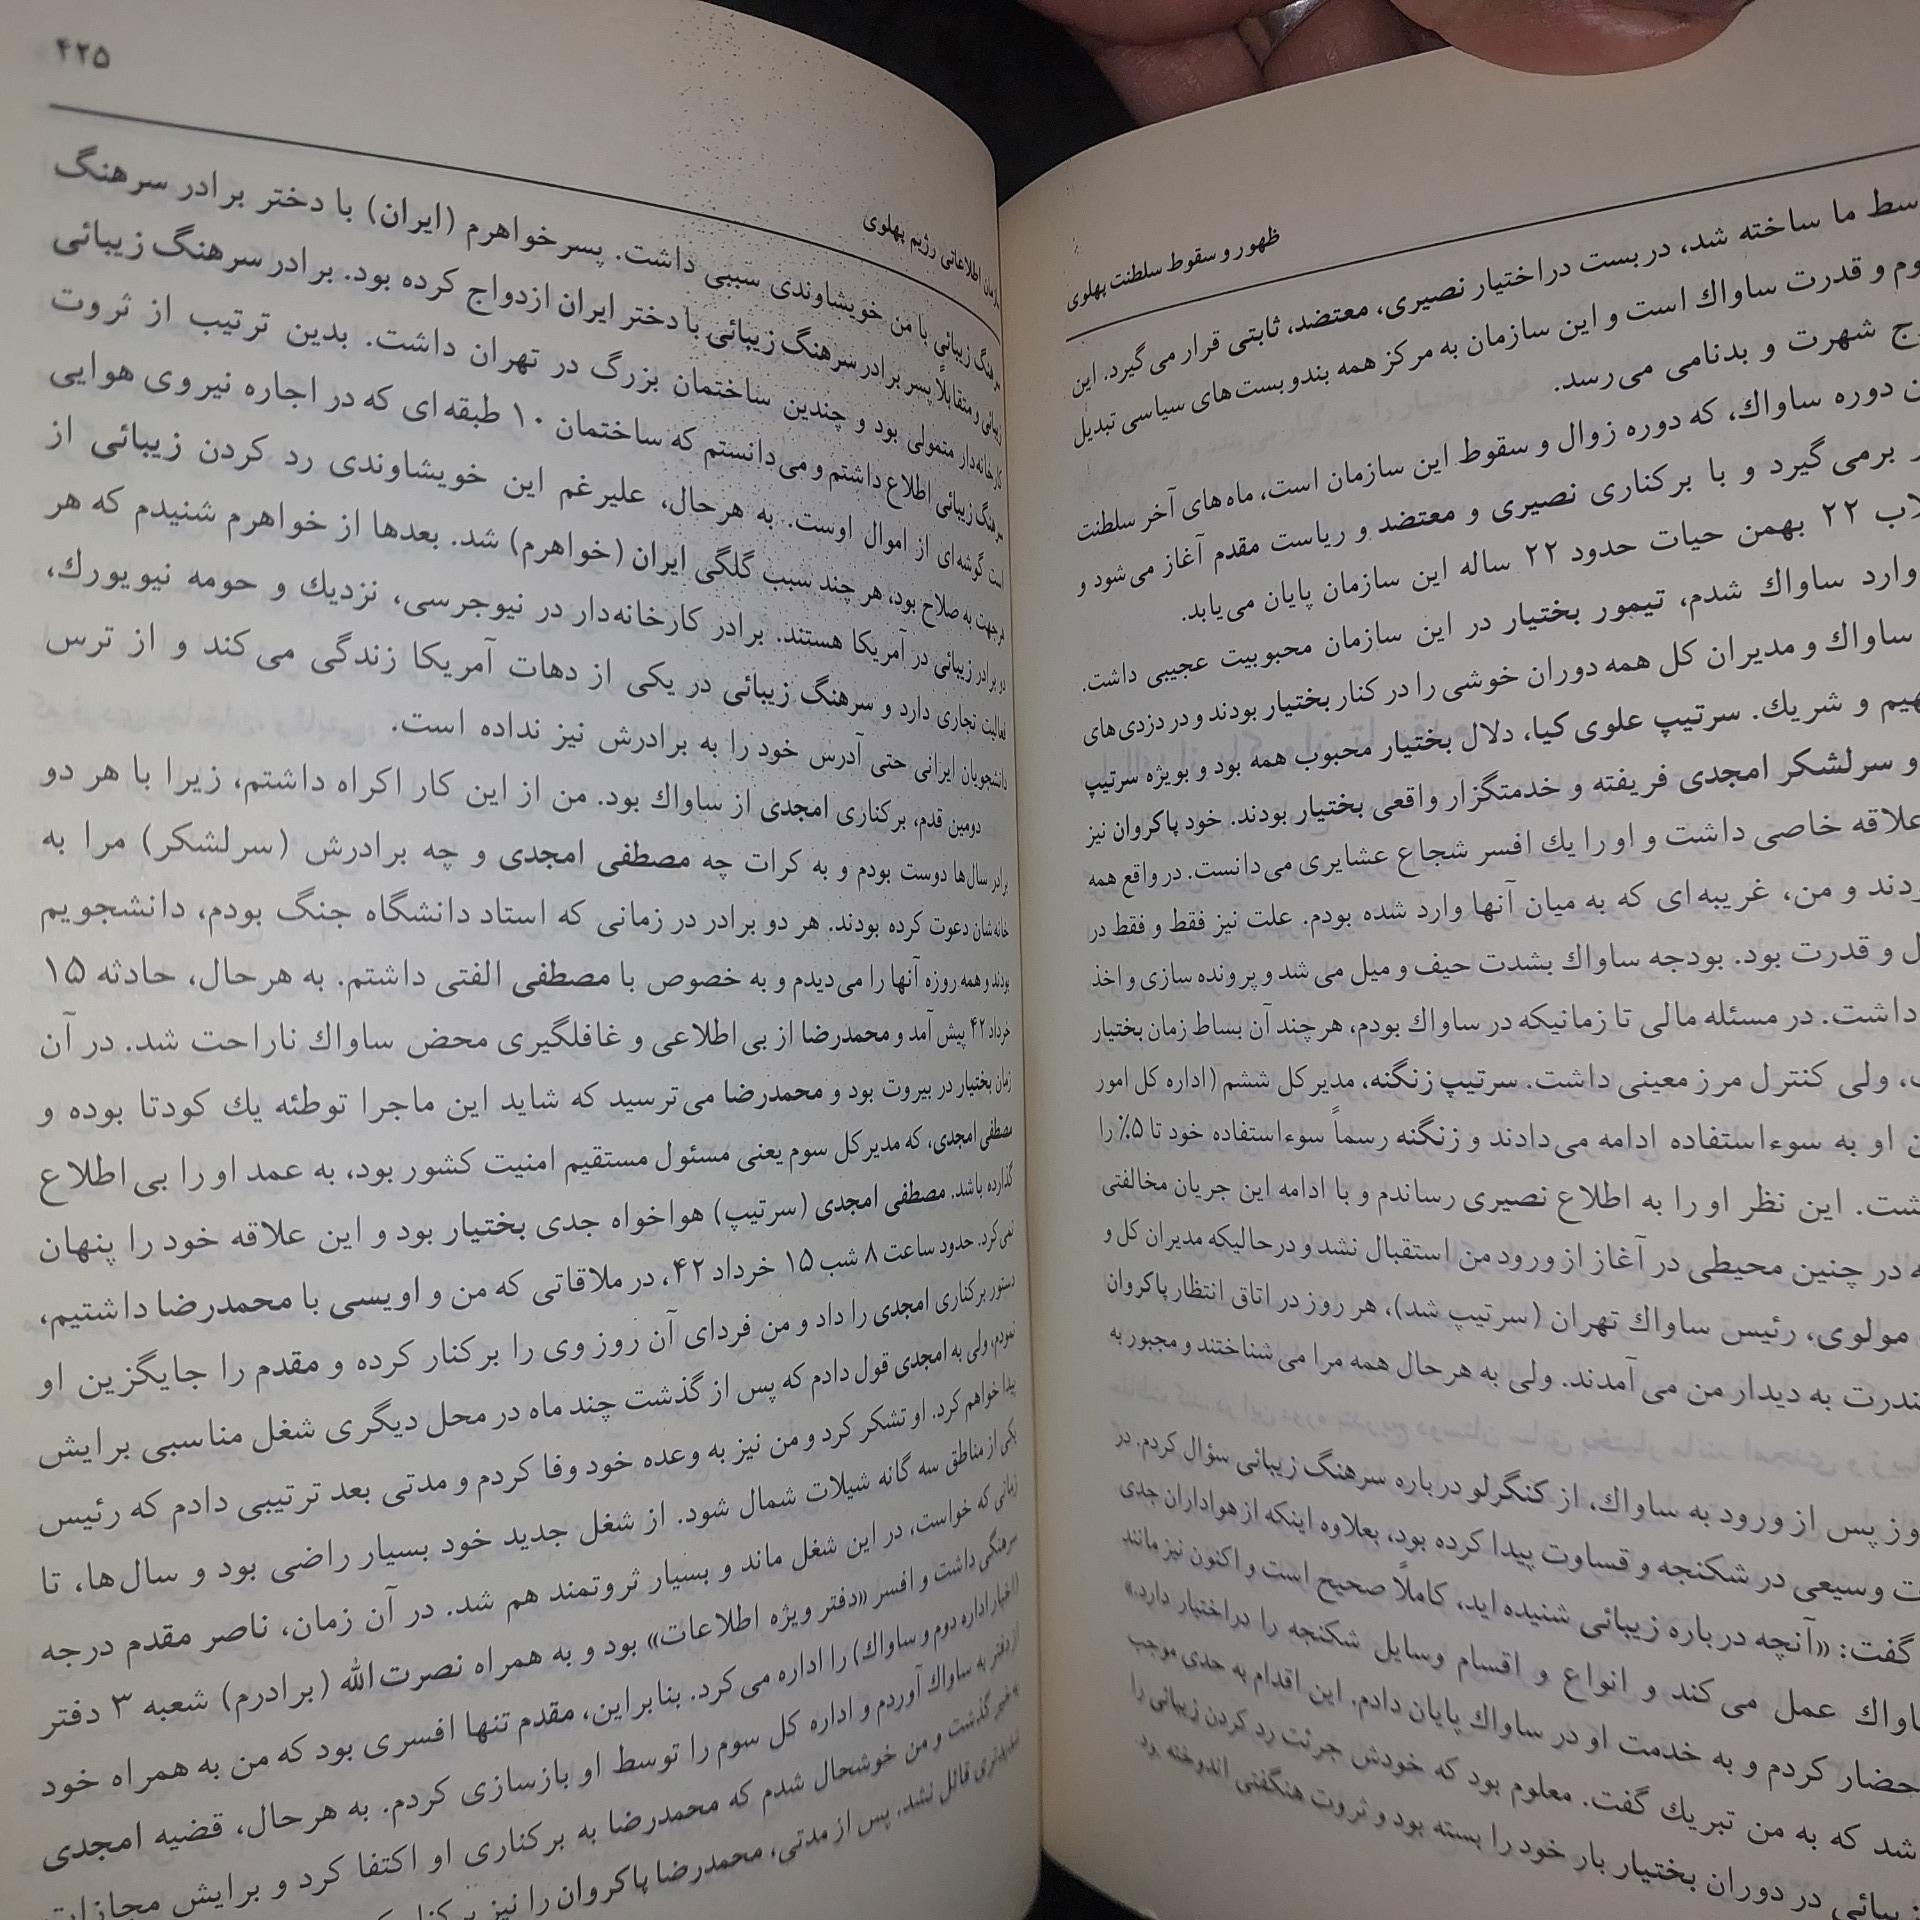 ظهور و سقوط سلطنت پهلوی
ما ساخته شد، دربست در اختیار نصیری، معتضد، ثابتی قرار می‌گیرد. این
و قدرت ساواك است و این سازمان به مرکز همه بندوبست‌های سیاسی تبدیل
شهرت و بدنامی می‌رسد.
دوره ساواك، که دوره زوال و سقوط این سازمان است، ماه‌های آخر سلطنت
برمی‌گیرد و با برکناری نصیری و معتضد و ریاست مقدم آغاز می‌شود و
۲۲ بهمن حیات حدود ۲۲ ساله این سازمان پایان می‌یابد.
وارد ساواك شدم، تیمور بختیار در این سازمان محبوبیت عجیبی داشت.
ساواك و مدیران کل همه دوران خوشی را در کنار بختیار بودند و در دزدی‌های
و شریك. سرتیپ علوی کیا، دلال بختیار محبوب همه بود و بویژه سرتیپ
و سرلشکر امجدی فریفته و خدمتگزار واقعی بختیار بودند. خود پاکروان نیز
علاقه خاصی داشت و او را یك افسر شجاع عشایری می‌دانست. در واقع همه
و من، غریبه‌ای که به میان آنها وارد شده بودم. علت نیز فقط و فقط در
و قدرت بود. بودجه ساواك بشدت حیف و میل می‌شد و پرونده سازی و اخذ
داشت. در مسئله مالی تا زمانیکه در ساواك بودم، هر چند آن بساط زمان بختیار
ولی کنترل مرز معینی داشت. سرتیپ زنگنه، مدیرکل ششم (اداره کل امور
او به سوءاستفاده ادامه می‌دادند و زنگنه رسماً سوءاستفاده خود تا ۵٪ را
این نظر او را به اطلاع نصیری رساندم و با ادامه این جریان مخالفتی
در چنین محیطی در آغاز از ورود من استقبال نشد و درحالیکه مدیران کل و
مولوی، رئیس ساواك تهران (سرتیپ شد)، هر روز در اتاق انتظار پاکروان
به دیدار من می‌آمدند. ولی به هر حال همه مرا می‌شناختند و مجبور به
پس از ورود به ساواك، از کنگرلو درباره سرهنگ زیبائی سؤال کردم. در
وسیعی در شکنجه و قساوت پیدا کرده بود، بعلاوه اینکه از هواداران جدی
گفت: «آنچه درباره زیبائی شنیده‌اید، کاملاً صحیح است و اکنون نیز مانند
عمل می‌کند و انواع و اقسام وسایل شکنجه را در اختیار دارد.»
کردم و به خدمت او در ساواك پایان دادم. این اقدام به حدی موجب
شد که به من تبریك گفت. معلوم بود که خودش جرئت رد کردن زیبائی را
در دوران بختیار بار خود را بسته بود و ثروت هنگفتی اندوخته بود.
۴۲۵
اطلاعاتی رژیم پهلوی
زیبائی با من خویشاوندی سببی داشت. پسر خواهرم (ایران) با دختر برادر سرهنگ
زیبائی و متقابلاً پسر برادر سرهنگ زیبائی با دختر ایران ازدواج کرده بود. برادر سرهنگ زیبائی
کارخانه‌دار متمولی بود و چندین ساختمان بزرگ در تهران داشت. بدین ترتیب از ثروت
سرهنگ زیبائی اطلاع داشتم و می‌دانستم که ساختمان ۱۰ طبقه‌ای که در اجاره نیروی هوایی
است گوشه‌ای از اموال اوست. به هرحال، علیرغم این خویشاوندی رد کردن زیبائی از
هر جهت به صلاح بود، هر چند سبب گلگی ایران (خواهرم) شد. بعدها از خواهرم شنیدم که هر
دو برادر زیبائی در آمریکا هستند. برادر کارخانه‌دار در نیوجرسی، نزدیك و حومه نیویورك،
فعالیت تجاری دارد و سرهنگ زیبائی در یکی از دهات آمریکا زندگی می‌کند و از ترس
دانشجویان ایرانی حتی آدرس خود را به برادرش نیز نداده است.
دومین قدم، برکناری امجدی از ساواك بود. من از این کار اکراه داشتم، زیرا با هر دو
برادر سال‌ها دوست بودم و به کرات چه مصطفی امجدی و چه برادرش (سرلشکر) مرا به
خانه‌شان دعوت کرده بودند. هر دو برادر در زمانی که استاد دانشگاه جنگ بودم، دانشجویم
بودند و همه روزه آنها را می‌دیدم و به خصوص با مصطفی الفتی داشتم. به هرحال، حادثه ۱۵
خرداد ۴۲ پیش آمد و محمدرضا از بی‌اطلاعی و غافلگیری محض ساواك ناراحت شد. در آن
زمان بختیار در بیروت بود و محمدرضا می‌ترسید که شاید این ماجرا توطئه یك کودتا بوده و
مصطفی امجدی، که مدیرکل سوم یعنی مسئول مستقیم امنیت کشور بود، به عمد او را بی‌اطلاع
گذارده باشد. مصطفی امجدی (سرتیپ) هواخواه جدی بختیار بود و این علاقه خود را پنهان
نمی‌کرد. حدود ساعت ۸ شب ۱۵ خرداد ۴۲، در ملاقاتی که من و اویسی با محمدرضا داشتیم،
دستور برکناری امجدی را داد و من فردای آن روز وی را برکنار کرده و مقدم را جایگزین او
نمودم، ولی به امجدی قول دادم که پس از گذشت چند ماه در محل دیگری شغل مناسبی برایش
پیدا خواهم کرد. او تشکر کرد و من نیز به وعده خود وفا کردم و مدتی بعد ترتیبی دادم که رئیس
یکی از مناطق سه گانه شیلات شمال شود. از شغل جدید خود بسیار راضی بود و سال‌ها، تا
زمانی که خواست، در این شغل ماند و بسیار ثروتمند هم شد. در آن زمان، ناصر مقدم درجه
سرهنگی داشت و افسر «دفتر ویژه اطلاعات» بود و به همراه نصرت‌الله (برادرم) شعبه ۳ دفتر
(اخبار اداره دوم و ساواك) را اداره می‌کرد. بنابراین، مقدم تنها افسری بود که من به همراه خود
از دفتر به ساواك آوردم و اداره کل سوم را توسط او بازسازی کردم. به هرحال، قضیه امجدی
گذشت و من خوشحال شدم که محمدرضا به برکناری او اکتفا کرد و برایش مجازات
قائل نشد. پس از مدتی، محمدرضا پاکروان را نیز